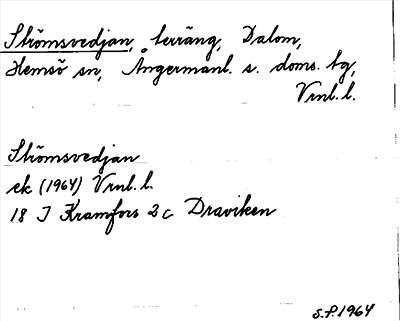 Strömsvedjan, terräng, Dalom,
Hemsö sn, Ångermanl. s. doms. tg,
Vrnl. l.
Strömsvedjan
ek (1964) Vrnl. l.
18 I Kramfors 2 c Draviken
S.P. 1964